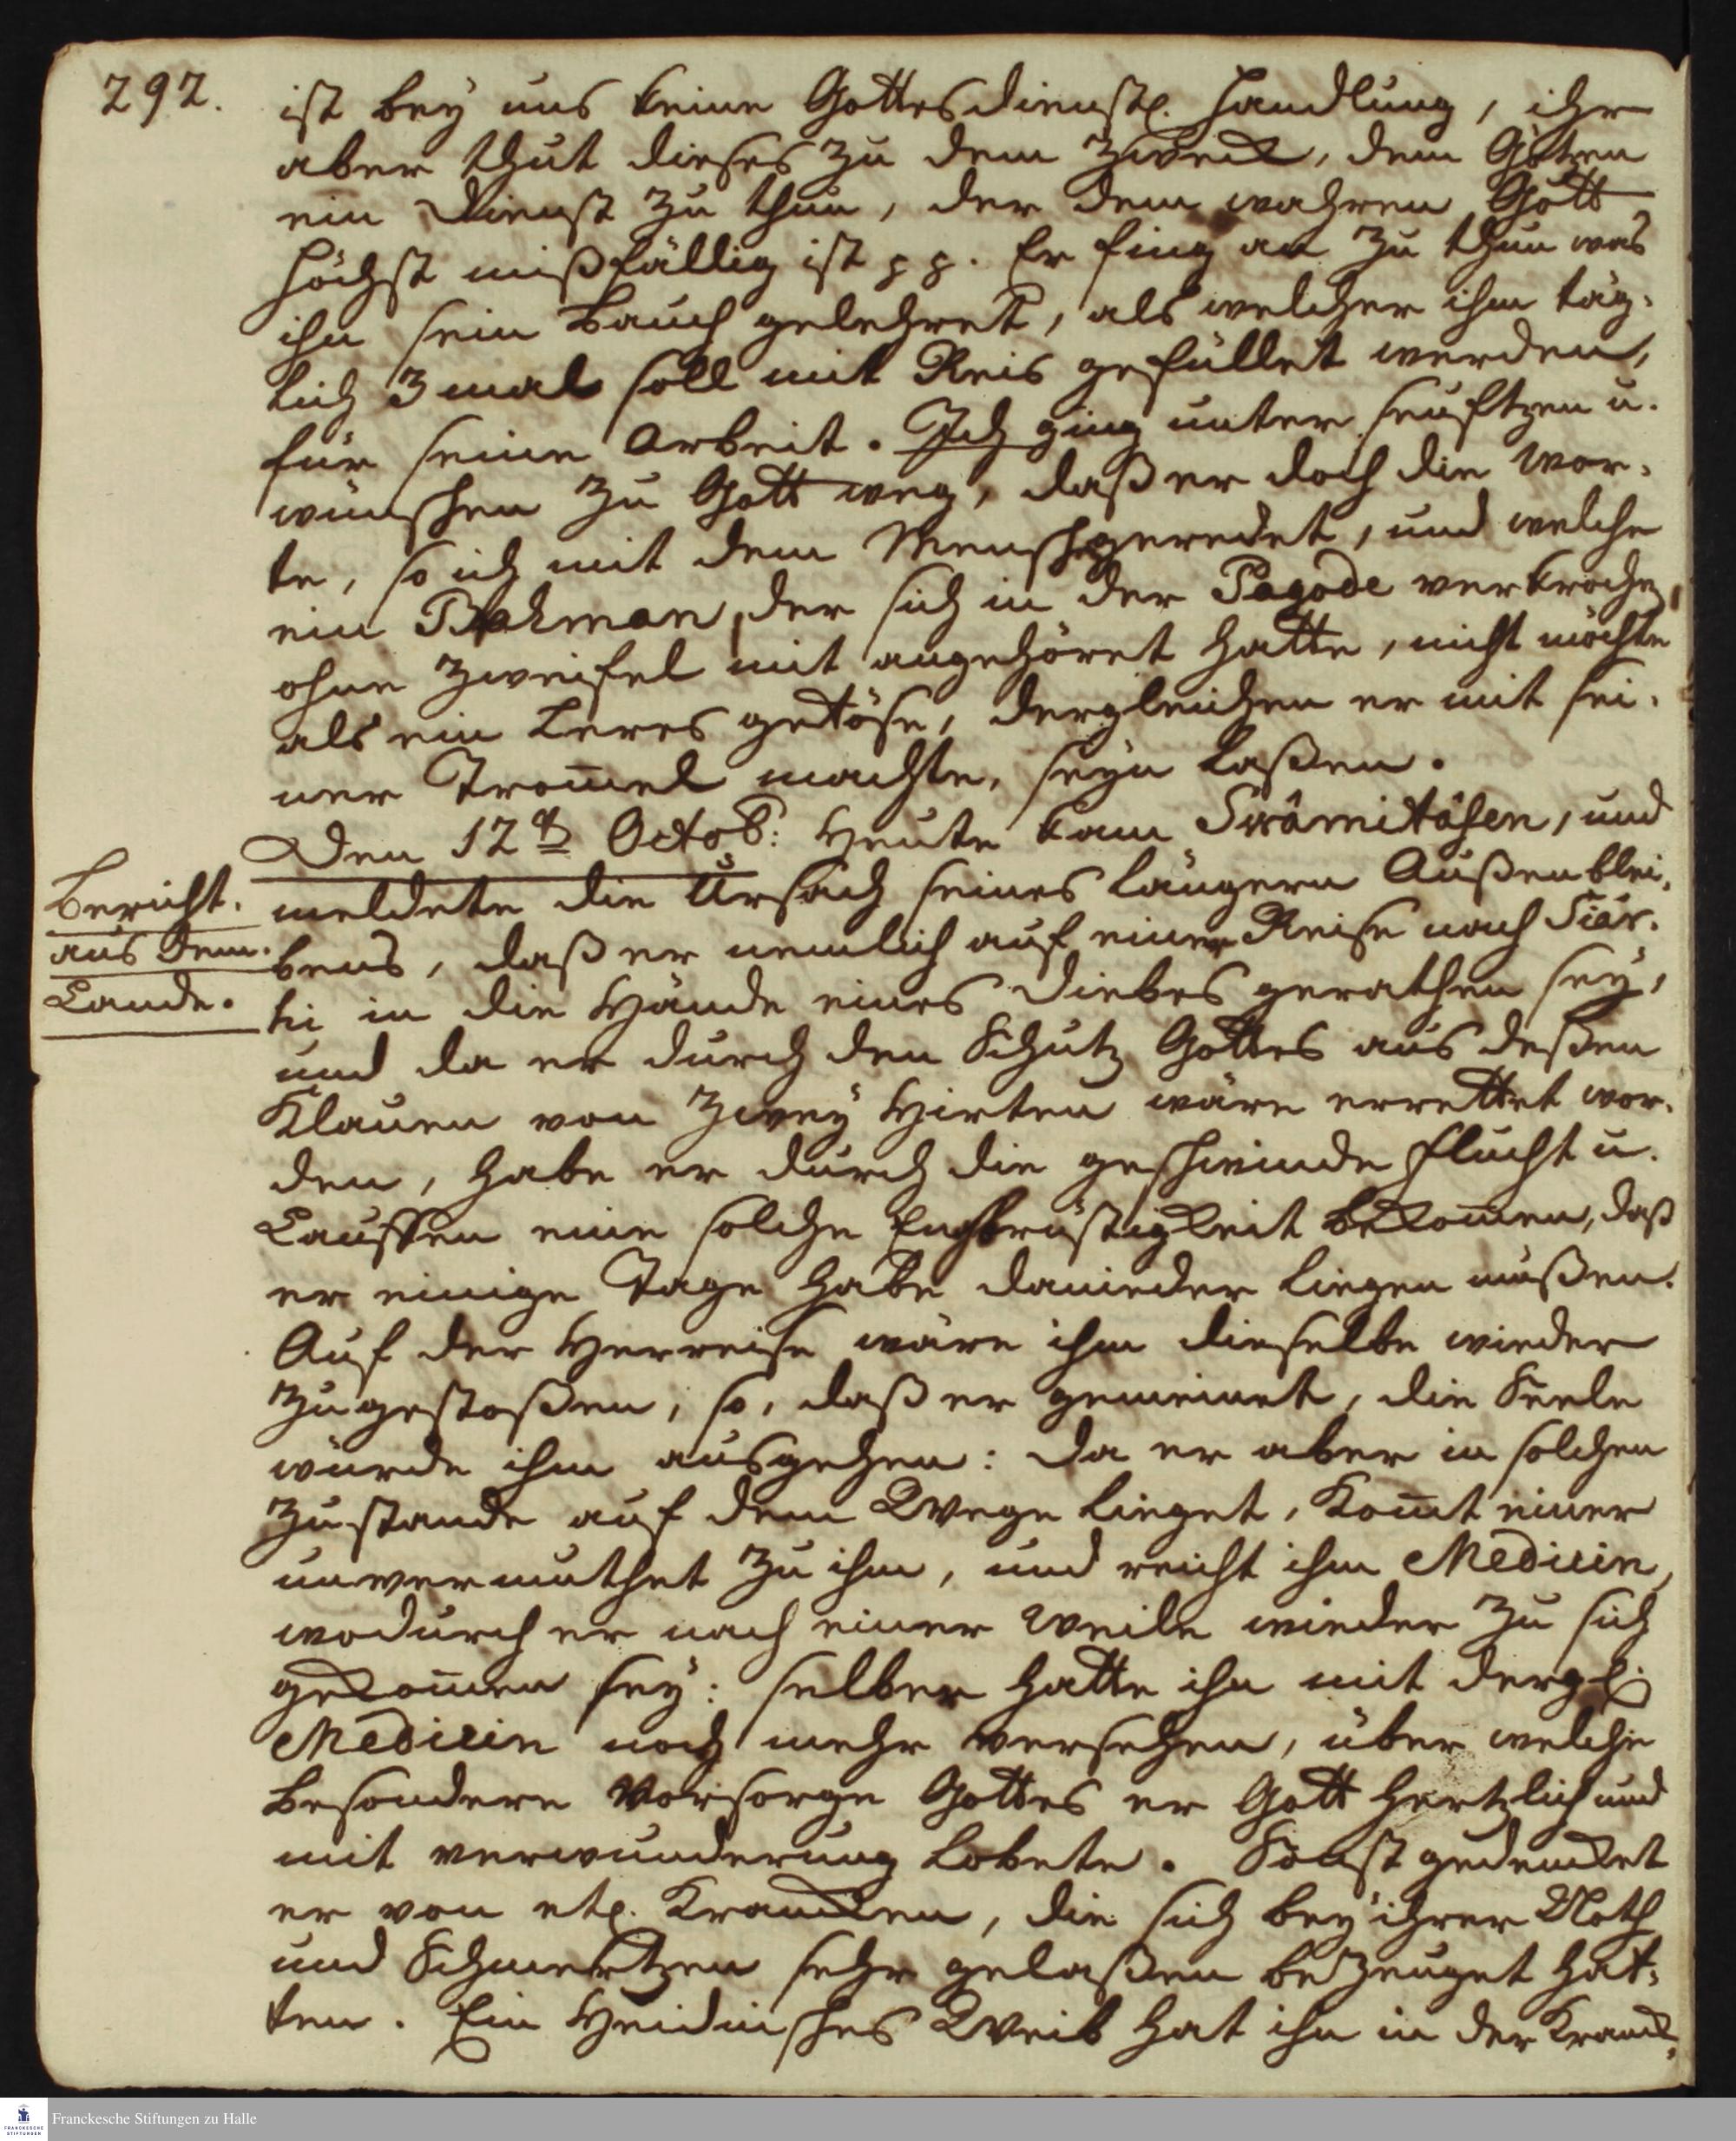 292.
ist bey uns keine Gottesdienstl. Handlung, ihr
aber thut dieses zu dem Zweck, dem Götzen
ein Dienst zu thun, der dem wahren Gott
höchst mißfällig ist pp. Er fing an zu thun was
ihn sein Bauch gelehret, als welcher ihm täg-
lich 3 mal soll mit Reis gefüllet werden,
für seine Arbeit. Ich ging unter seuftzen u.
wünschen zu Gott weg, daß er doch die Wor-
te, so ich mit dem Mensch geredet, und welche
ein Brahman, der sich in der Pagode verkroche,
ohne Zweifel mit angehöret hatte, nicht möchte
als ein Leres getöse, dergleichen er mit sei-
ner Trom̄el machte, seyn laßen.
Den 12t. Octob: Heute kam Swâmitâsen, und
Bericht.
aus dem.
Lande.
meldete die Ursach seines längern Außenblei-
bens, daß er nemlich auf einer Reise nach Siâr-
hi in die Hände eines Diebes gerathen sey,
und da er durch den Schutz Gottes aus deßen
Klauen von zwey Hirten wäre errettet wor-
den, habe er durch die geschwinde Flucht u.
Lauffen eine solche Engbrüstigkeit bekom̄en, daß
er einige Tage habe danieder liegen müßen.
Auf der Herreise wäre ihm dieselbe wieder
zugestoßen, so, daß er gemeinet, die Seele
würde ihm ausgehen: Da er aber in solchen
Zustande auf dem Wege lieget, Kom̄t einer
unvermuthet zu ihm, und reicht ihm Medicin,
wodurch er nach einer Weile wieder zu sich
gekom̄en sey: selber hatte ihn mit dergl.
Medicin noch mehr versehen, über welche
besondere Vorsorge Gottes er Gott hertzlich und
mit verwunderung lobete. Sonst gedencket
er von etl. Krancken, die sich bey ihrer Noth
und Schmertzen sehr gelaßen bezeuget hat-
ten. Ein Heidnisches Weib hat ihn in der Kranck-
Franckesche Stiftungen zu Halle